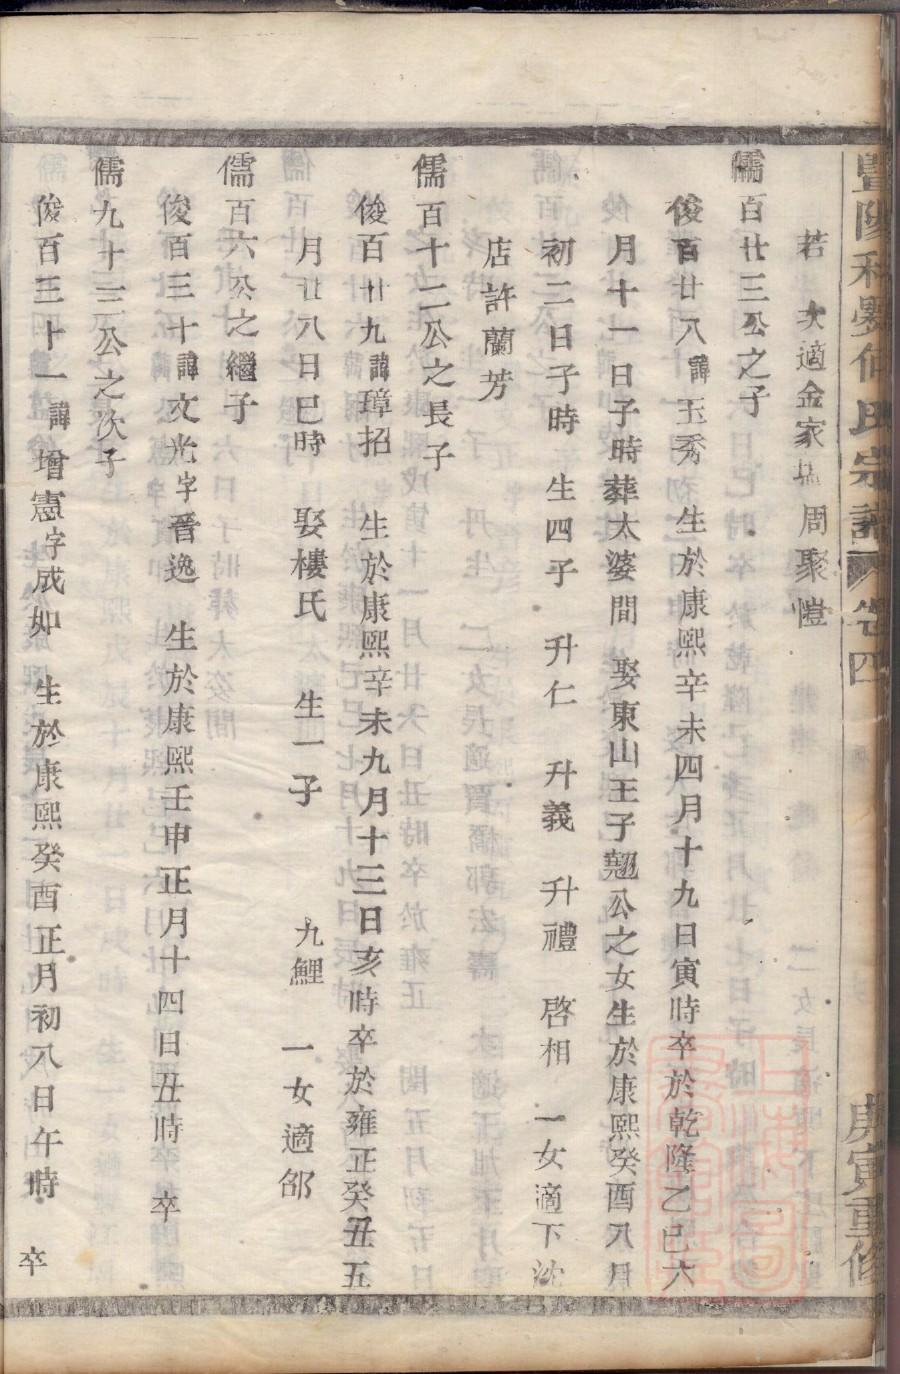 若 次適金家塢周聚愷
儒百廿三公之子
俊百廿八諱玉秀 生於康熙辛未四月十九日寅時卒於乾隆乙巳六
月十一日子時葬太婆間 娶東山王子翹公之女生於康熙癸酉八月
初二日子時 生四子 升仁 升義 升禮 啓相 一女適下沈
店許蘭芳
儒百十二公之長子
俊百廿九諱璋招 生於康熙辛未九月十三日亥時卒於雍正癸丑五
月廿八日巳時 娶樓氏 生一子 九鯉 一女適郤
儒百六公之繼子
俊百三十諱文光字晉逸 生於康熙壬申正月十四日丑時 卒
儒九十三公之次子
俊百三十一諱增憲字成如 生於康熙癸酉正月初八日午時 卒
氏宗譜 卷四 庚寅重修